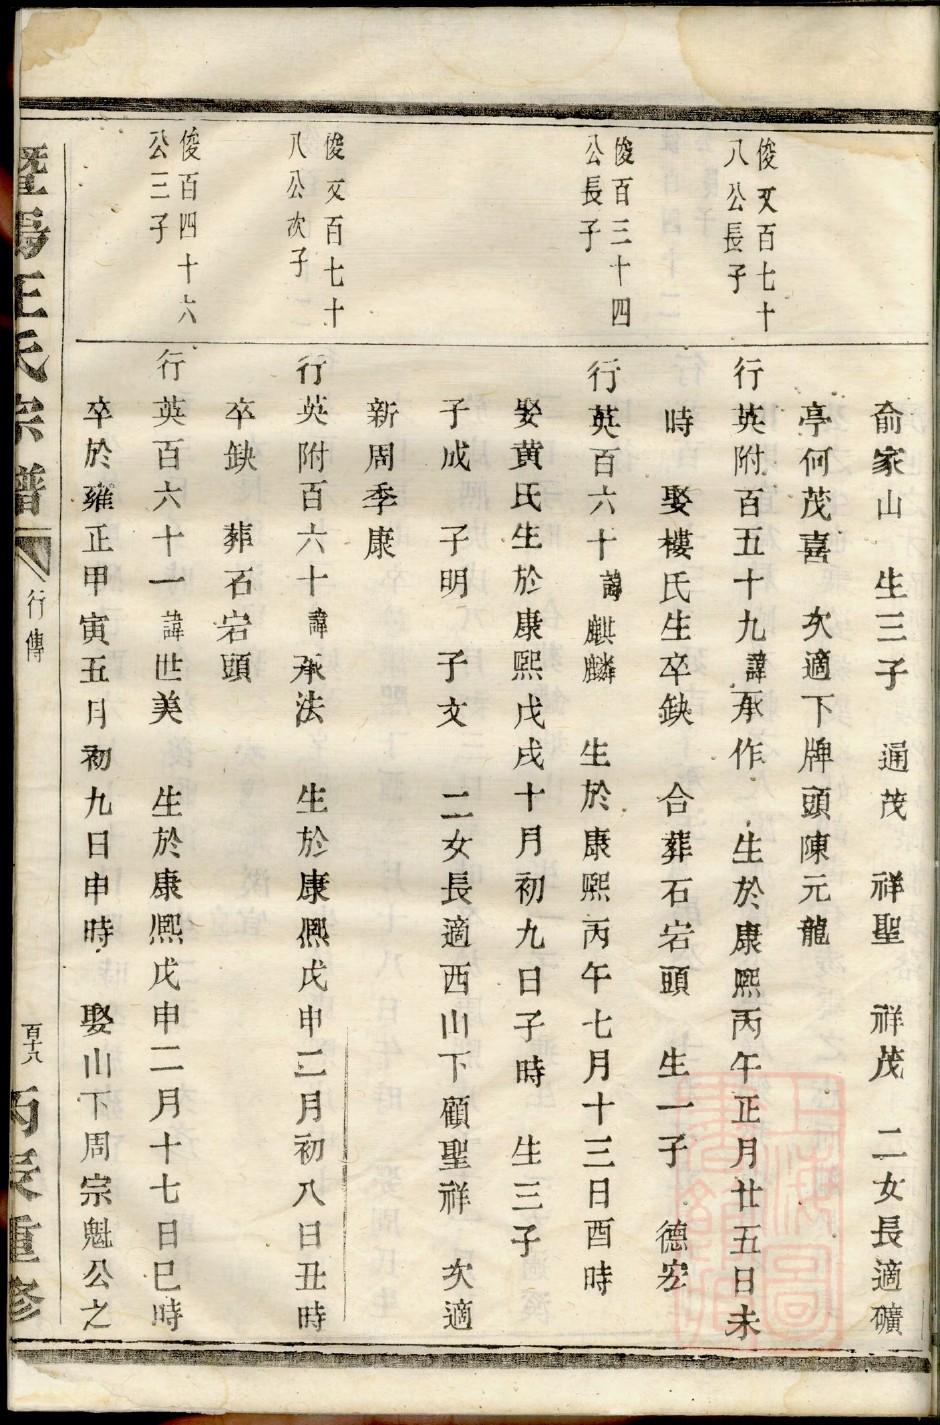 俞家山 生三子 通茂 祥聖 祥茂 二女長適礦
亭何茂喜 次適下牌頭陳元龍
俊文百七十
八公長子
行英附百五十九諱承作 生於康熙丙午正月廿五日未
時 娶樓氏生卒缺 合葬石岩頭 生一子 德宏
俊百三十四
公長子
行英百六十諱麒麟 生於康熙丙午七月十三日酉時
娶黄氏生於康熙戊戌十月初九日子時 生三子
子成 子明 子文 二女長適西山下顧聖祥 次適
新周季康
俊文百七十
八公次子
行英附百六十諱承法 生於康熙戊申二月初八日丑時
卒缺 葬石岩頭
俊百四十六
公三子
行英百六十一諱世美 生於康熙戊申二月十七日巳時
卒於雍正甲寅五月初九日申時 娶山下周宗魁公之
暨陽王氏宗譜 行傳 百十八 丙辰重修